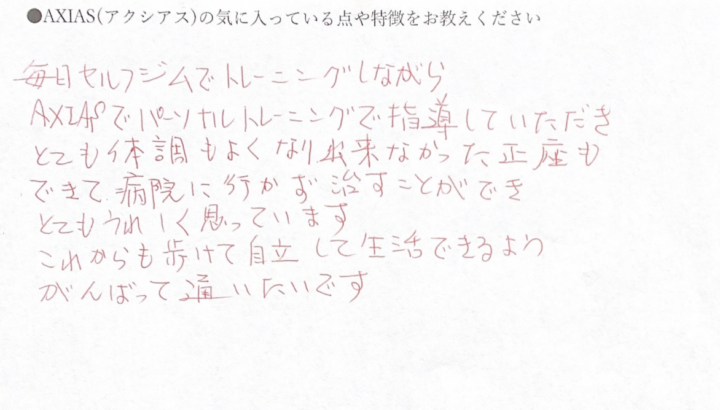 ●AXIAS(アクシアス)の気に入っている点や特徴をお教えください
毎日セルフジムでトレーニングしながら
AXIASでパーソナルトレーニングで指導していただき
とても体調もよくなり出来なかった正座も
できて病院に行かず治すことができ
とてもうれしく思っています
これからも歩けて自立して生活できるよう
がんばって通いたいです